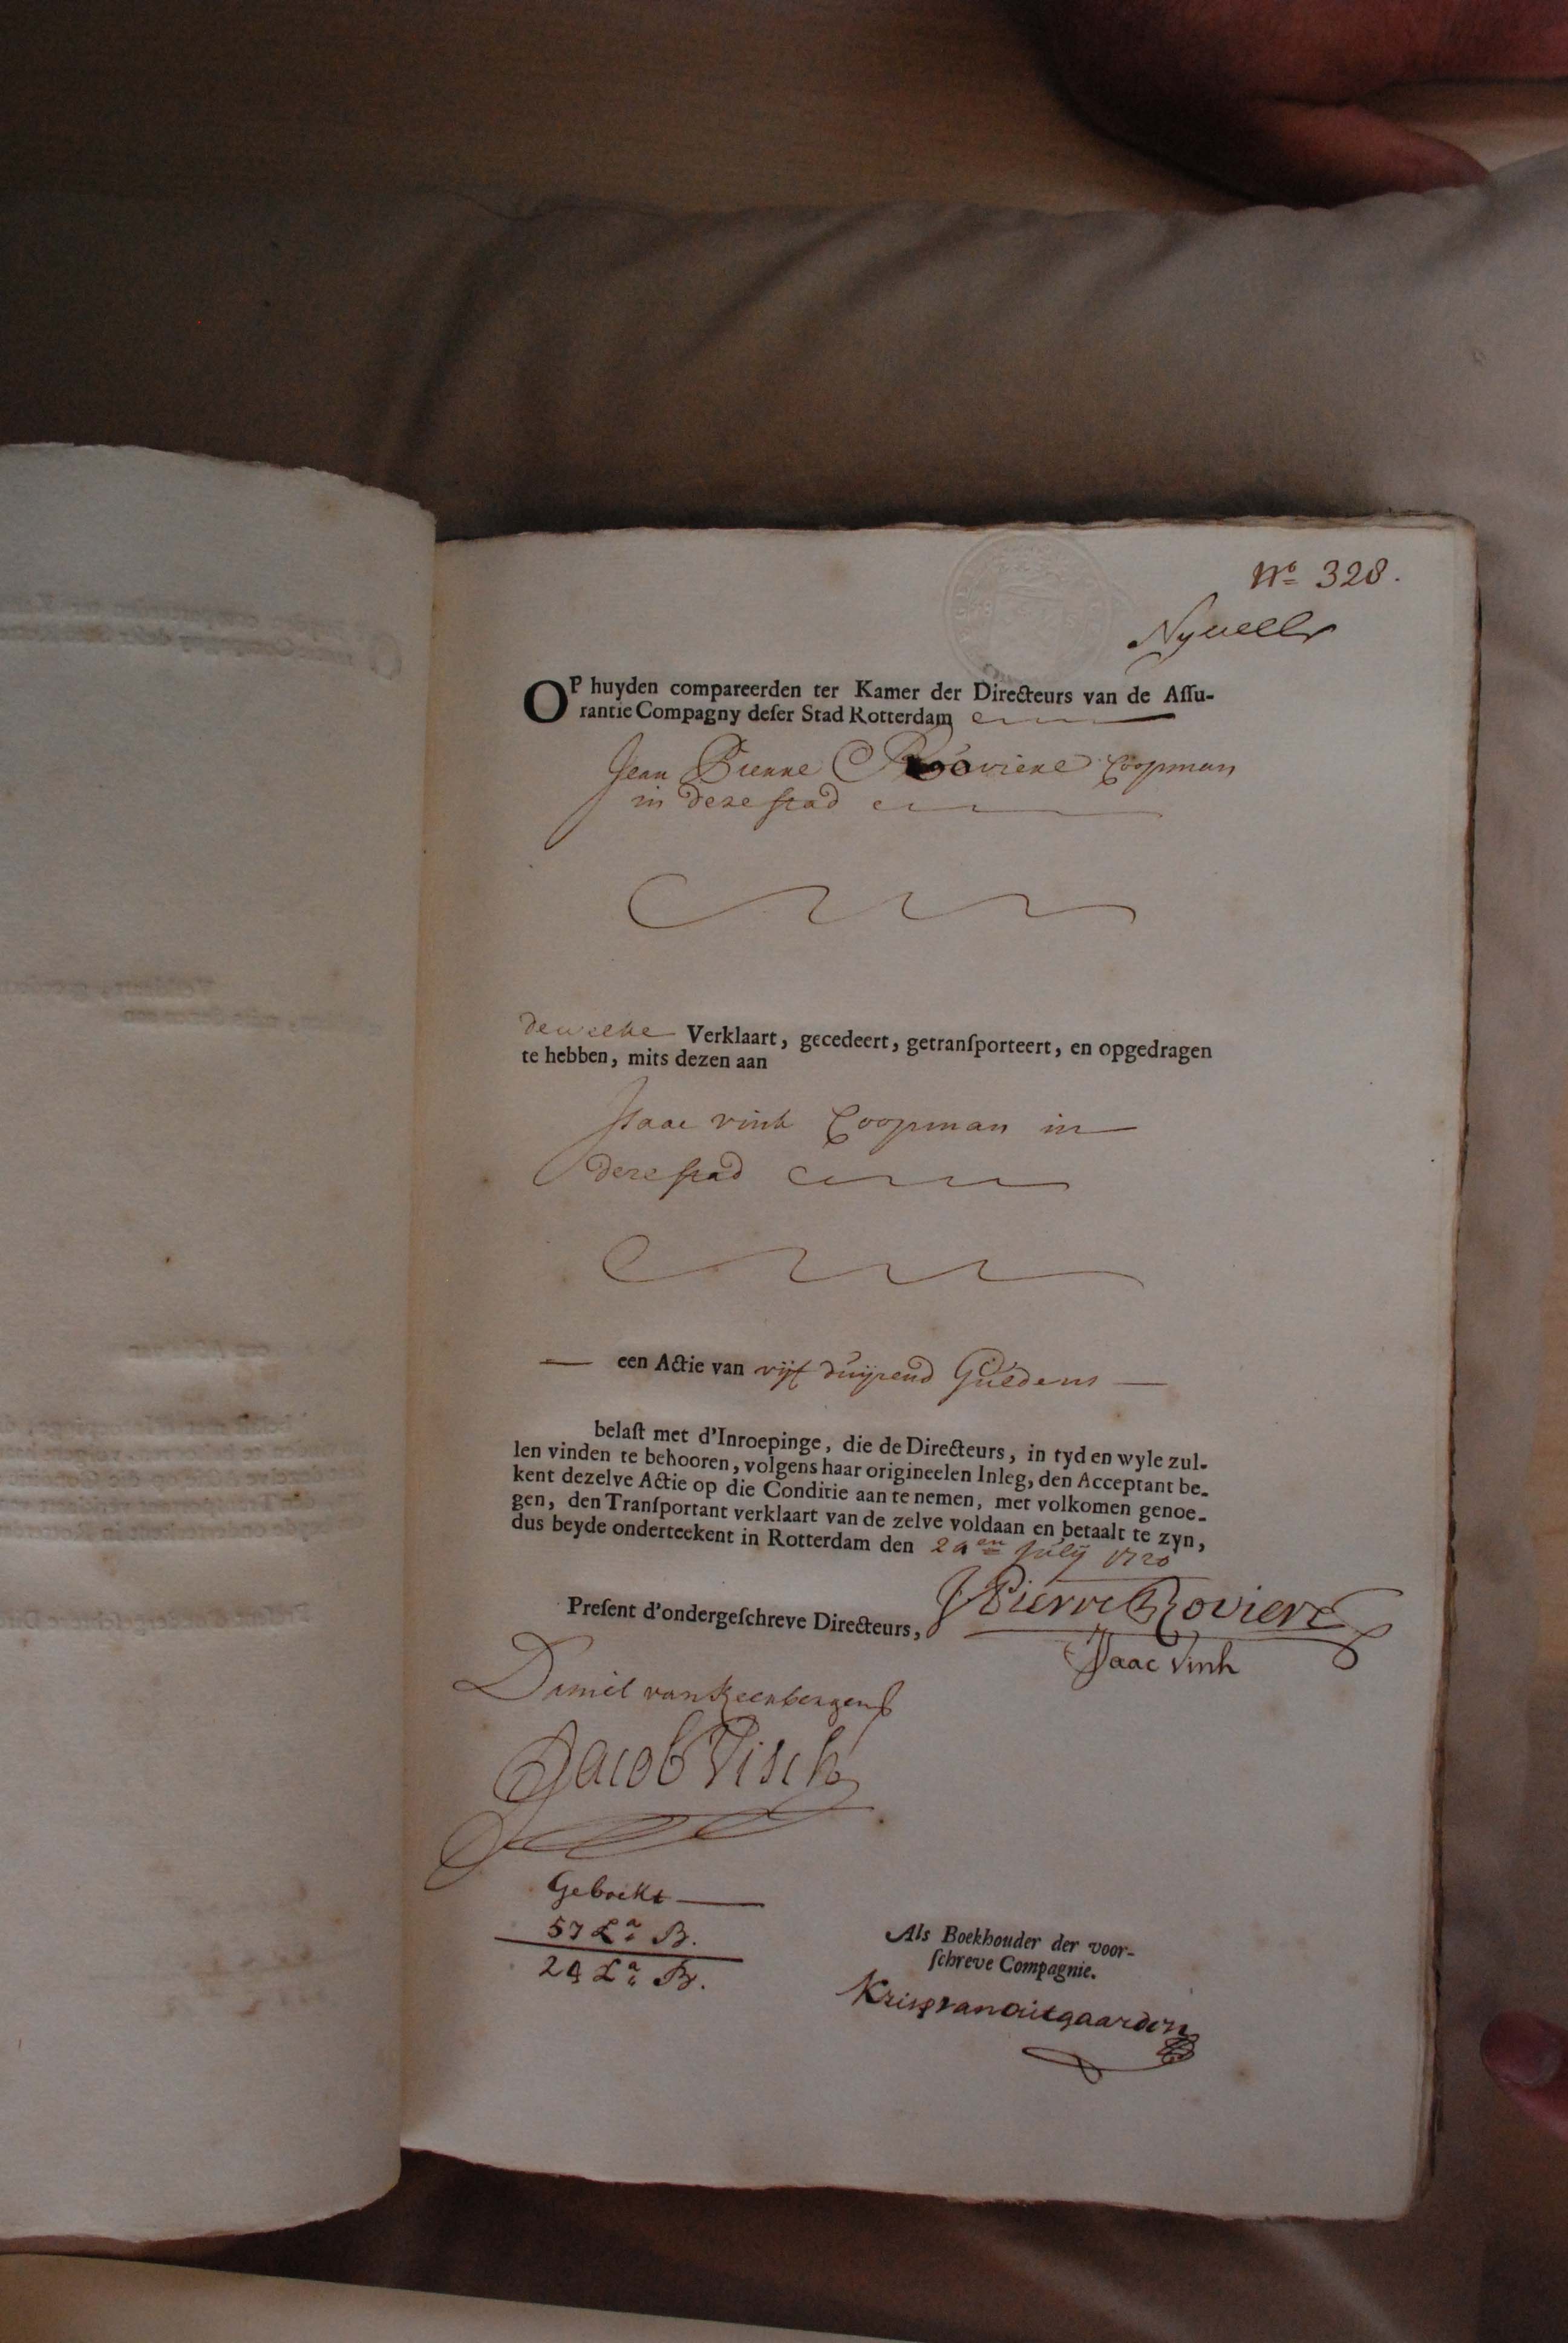 Nº 328.
Nyvelt
OP huyden compareerden ter Kamer der Directeurs van de Aſſu-
rantie Compagny deſer Stad Rotterdam
Jean Pierre Roviere Coopman
in deze stad
dewelke Verklaart, gecedeert, getranſporteert, en opgedragen
te hebben, mits dezen aan
Isaac vink Coopman in
deze stad
een Actie van vijf duijsend Guldens
belaſt met d'Inroepinge, die de Directeurs, in tyd en wyle zul-
len vinden te behooren, volgens haar origineelen Inleg, den Acceptant be-
kent dezelve Actie op die Conditie aan te nemen, met volkomen genoe-
gen, den Tranſportant verklaart van de zelve voldaan en betaalt te zyn,
dus beyde onderteekent in Rotterdam den 24en July 1720
Preſent d'ondergeſchreve Directeurs,
J Pierre Roviere
Isaac Vink
Daniel van
Jacob Visch
Geboekt
57 La B.
24 La B.
Als Boekhouder der voor-
ſchreve Compagnie.
Krisp van outgaarden